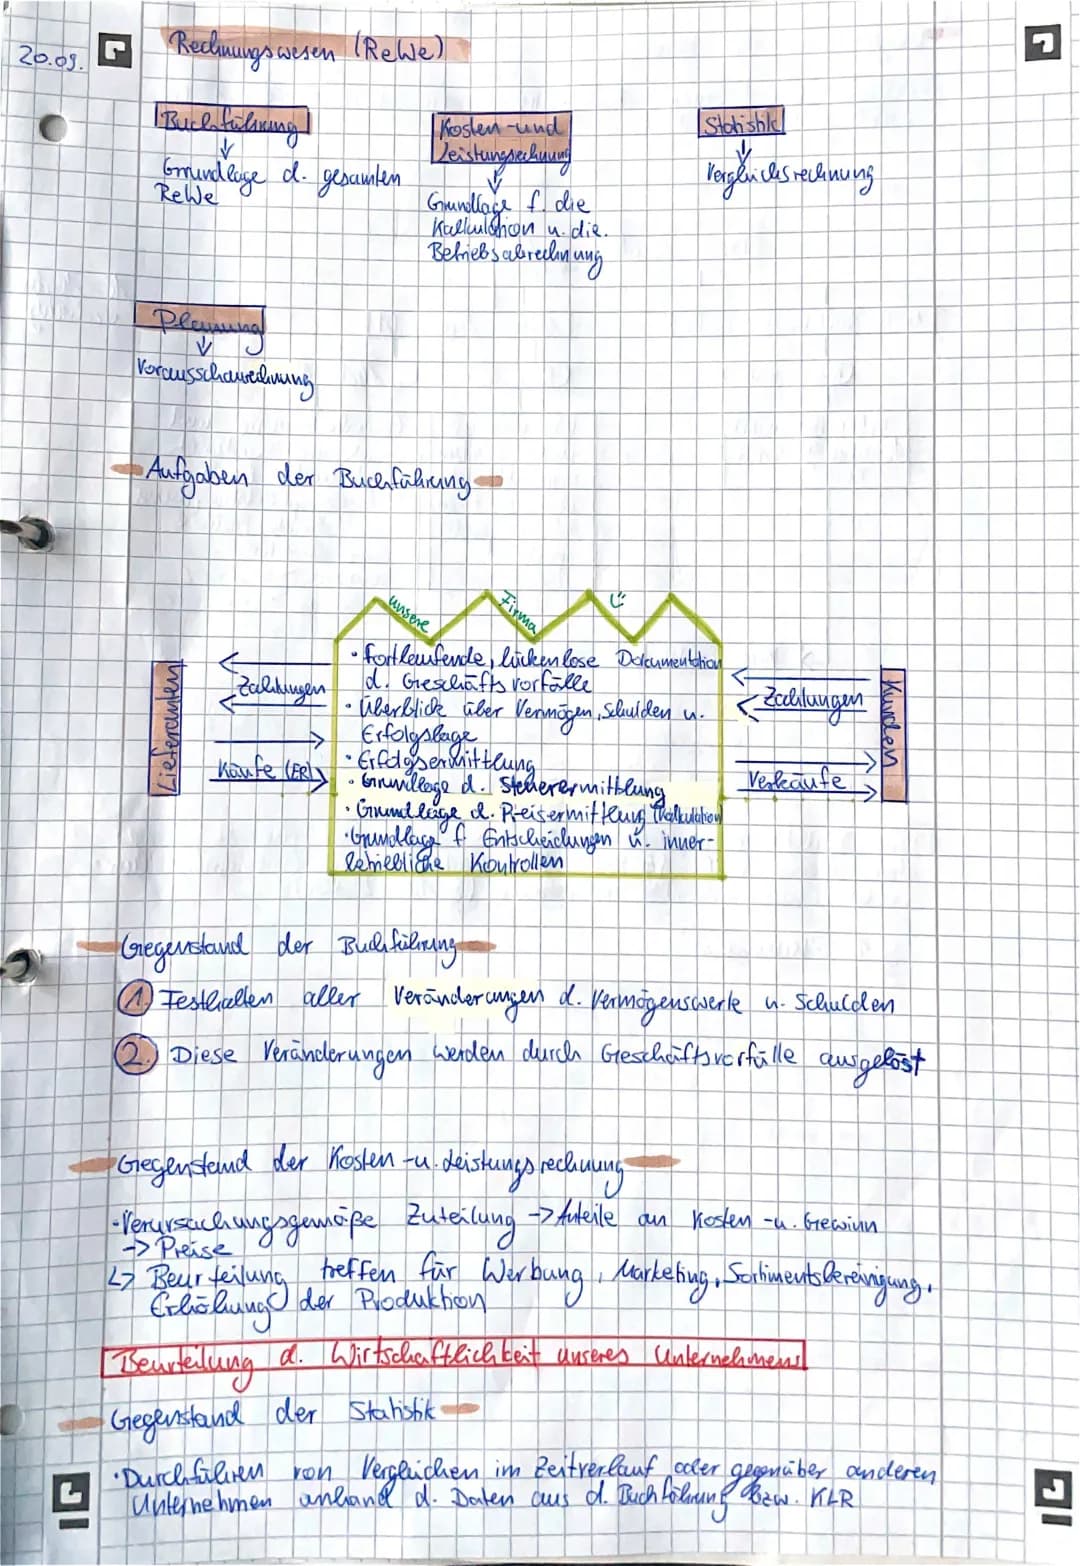 20.09.
Rechnungswesen (ReWe)
Buchführung
Grundlage d. gesamten
ReWe
Kosten-und
Leistungsrechnung
Grundlage f. die
Kalkulation u. die.
Betriebsabrechnung
Statistik
Vergleichsrechnung
Planung
Vorausschaurechnung
Aufgaben der Buchführung
unsere Firma
Lieferanten
Zahlungen
Käufe (ER)
• fortlaufende, lückenlose Dokumentation
d. Geschäftsvorfälle
• Überblick über Vermögen, Schulden u.
Erfolgslage
• Erfolgsermittlung
• Grundlage d. Steuerermittlung
• Grundlage d. Preisermittlung (Kalkulation)
• Grundlage f. Entscheidungen u. inner-
betriebliche Kontrollen
Zahlungen
Verkäufe
Kunden
Gegenstand der Buchführung
1. Festhalten aller Veränderungen d. Vermögenswerte u. Schulden
2. Diese Veränderungen werden durch Geschäftsvorfälle ausgelöst
Gegenstand der Kosten-u. Leistungsrechnung
-Verursachungsgemäße Zuteilung -> Anteile an Kosten-u. Gewinn
-> Preise
↳ Beurteilung treffen für Werbung, Marketing, Sortimentsbereinigung,
Erhöhung der Produktion
Beurteilung d. Wirtschaftlichkeit unseres Unternehmens!
Gegenstand der Statistik
• Durchführen von Vergleichen im Zeitverlauf oder gegenüber anderen
Unternehmen anhand d. Daten aus d. Buchführung bzw. KLR